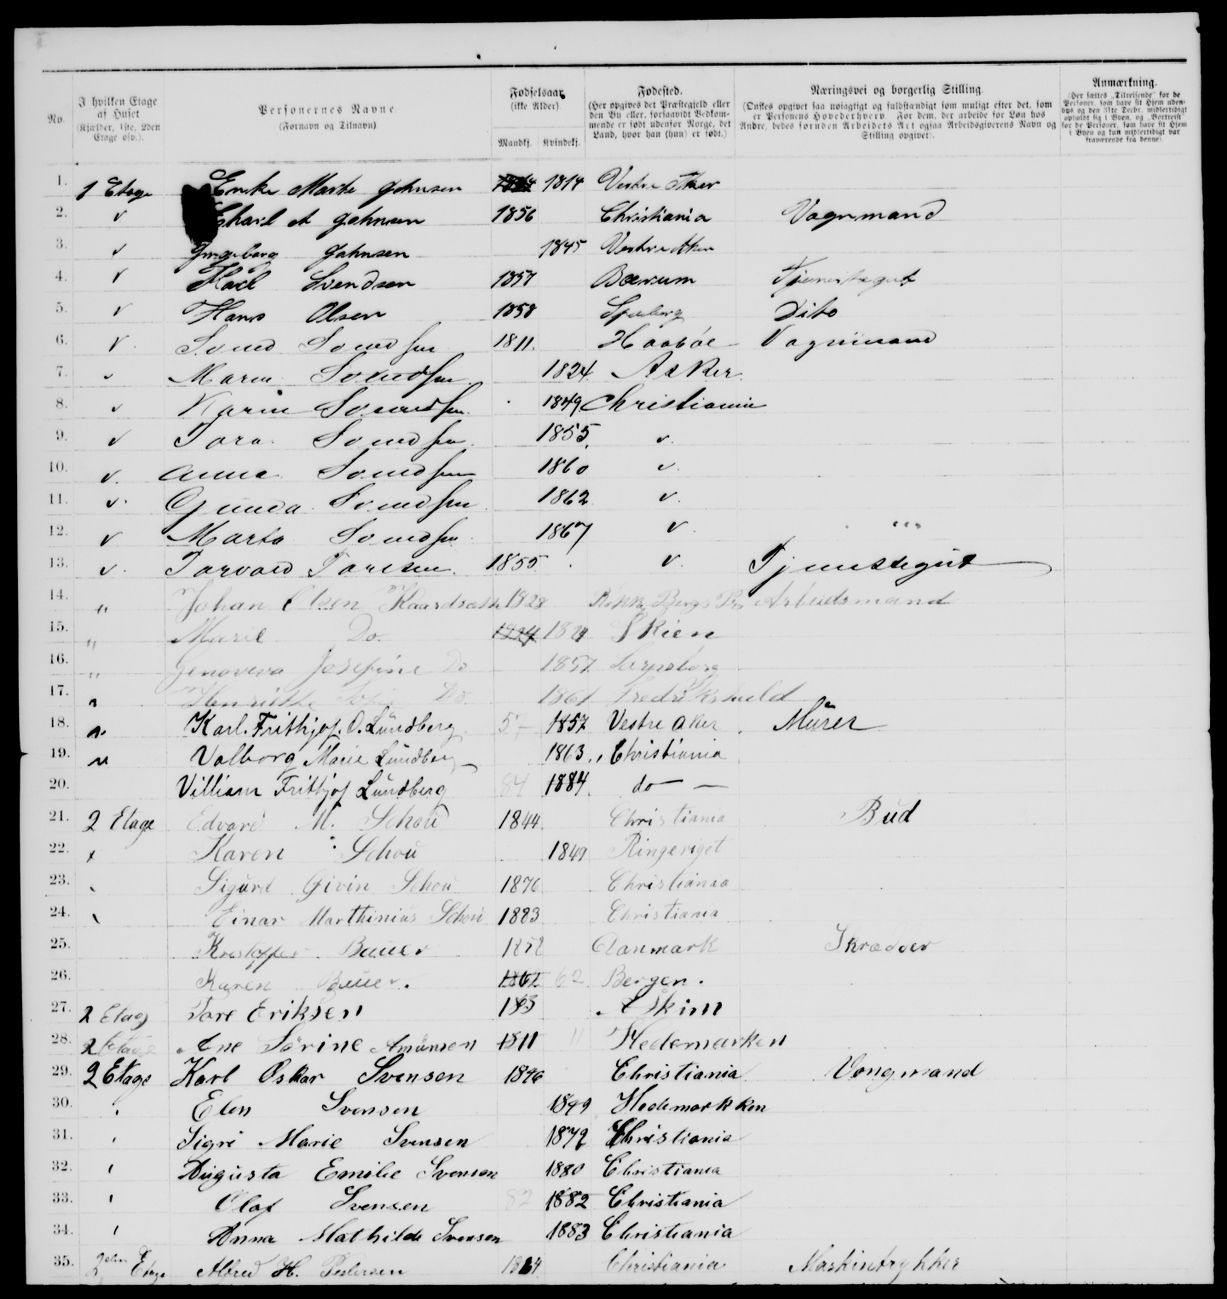 No. I hvilken Etage af Huset (Kjælder, 1ste, 2den Etage osv.). Personernes Navne (Fornavn og Tilnavn) Fødselsaar (ikke Alder). Mandkj. Kvindekj. Fødested. (Her opgives det Præstegjeld eller den By eller, forsaavidt Vedkommende er født udenfor Norge, det Land, hvor han (hun) er født.) Næringsvei og borgerlig Stilling. (Ønskes opgivet saa nøiagtigt og fuldstændigt som muligt efter det, som er Personens Hovederhverv. For dem, der arbeide for Løn hos Andre, bedes foruden Arbeidets Art ogsaa Arbeidsgiverens Navn og Stilling opgivet). Anmærkning.
1. 1 Etage Marte Johnsen 1814 Vestre Aker
2. v A Johnsen 1856 Christiania Vognmand
3. v Ingeborg Johnsen 1845 Vestre Aker
4. v Svendsen 1857 Bærum Tjenestegut
5. v Hans Olsen 1858 Spydeberg Dito
6. v Svend Svendsen 1811. Haabøl Vognmand
7. v Maren Svendsen 1824 Asker
8. v Karin Svendsen 1849 Christiania
9. v Tora Svendsen 1855. v.
10. v. Anna Svendsen 1860 v.
11. v. Gunda Svendsen 1862 v.
12. v Marta Svendsen 1867 v
13. v. Torvald 1855 v. Tjenestegut
14. " Johan Olsen 1828 Arbeidsmand
15. " Marie Do. 1824 Skien
16. " Genoveva Josefine Do 1857
17. " Do 1861 Fredrikshald
18. " Karl. Frithjof. O. Lundberg 57 1857 Vestre Aker Murer
19. " Valborg Marie Lundberg 1863. Christiania
20. Villiam Frithjof Lundberg 84 1884. do
21. 2 Etage Edvard M. Schou 1844 Christiania Bud
22. Karen Schou 1849 Ringeriget
23. Sigurd Schou 1876 Christiania
24. Einar Marthinius Schou 1883 Christiania
25. Bauer 1852 Danmark Skrædder
26. Karen Bauer. 62 Bergen.
27. 2 Etage Tore Eriksen Askim
28. 2 Etage Ane Sørine 1811 11 Hedemarken
29. 2 Etage Karl Oskar Svensen 1846 Christiania Vongmand
30. Elen Svensen 1849 Hedemarkken
31. Sigri Marie Svensen 1872 Christiania
32. Augusta Emilie Svensen 1880 Christiania
33. Olaf Svensen 82 1882 Christiania
34. Anna Mathilde Svensen 1883 Christiania
35. 2den Etage Alfred H. Pedersen 1864 Christiania Maskintrykker